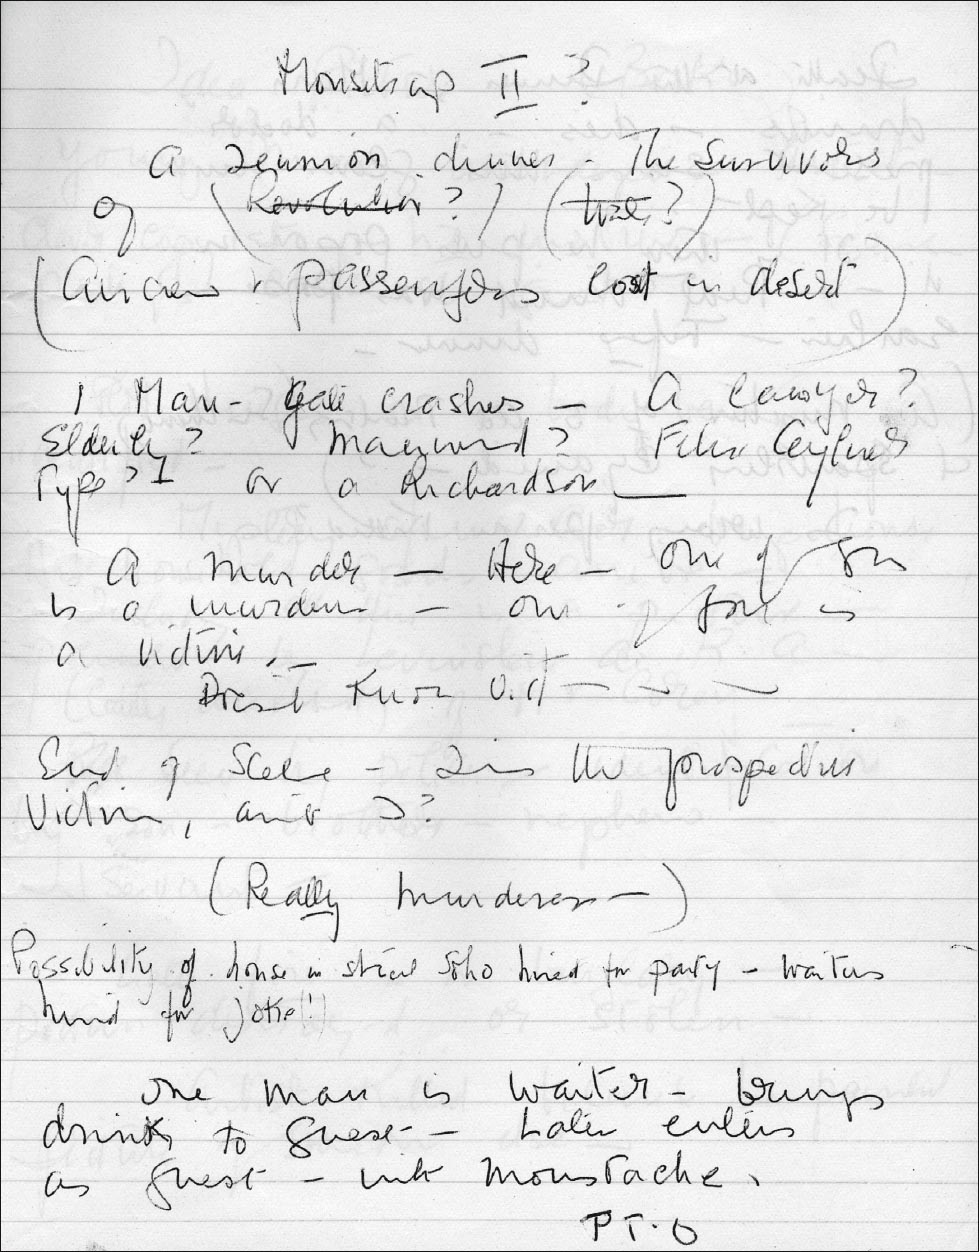 Mousetrap II ?
A reunion dinner - The Survivors
of (Revolution ?) (War ?)
(Aircrew & passengers lost in desert)
1 Man - Gate crashes - A lawyer?
Elderly? Mannered? Felix Aylmer
Type? or a Richardson
A murder - Here - One of you
is a murderer - one of you is
a victim -
Doesn't know
End of Scene - the prospective
Victim,
(Really murderer -)
Possibility of house in street Soho hired for party - waiters
hired for joke(!)
One man is waiter - brings
drinks to guest - Later enters
as guest - with moustache.
P T.O